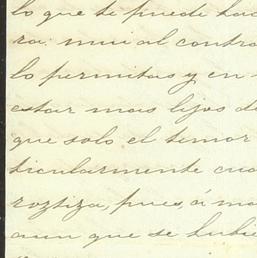 lo que te puede hac
ra: mui al contra
lo permitas y en
estar mas lejos d
que solo el temor
ticularmente cua
roztiza, pues, á ma
aun que se hubie